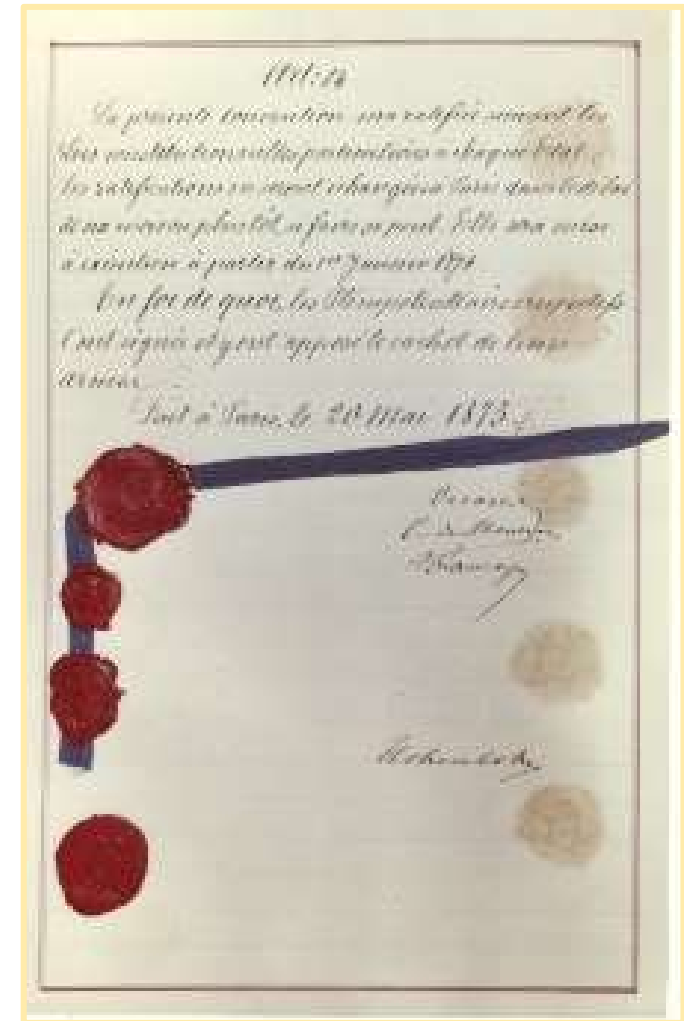 Art: 14
La présente Convention sera ratifiée suivant les
lois constitutionnelles particulières à chaque Etat;
les ratifications en seront échangées à Paris dans le délai
de six mois ou plus tôt, si faire se peut. Elle sera mise
à exécution à partir du 1er Janvier 1876
En foi de quoi, les Plénipotentiaires respectifs
l'ont signée et y ont apposé le cachet de leurs
armes.
Fait à Paris, le 20 Mai 1875.
Decazes
Hohenlohe